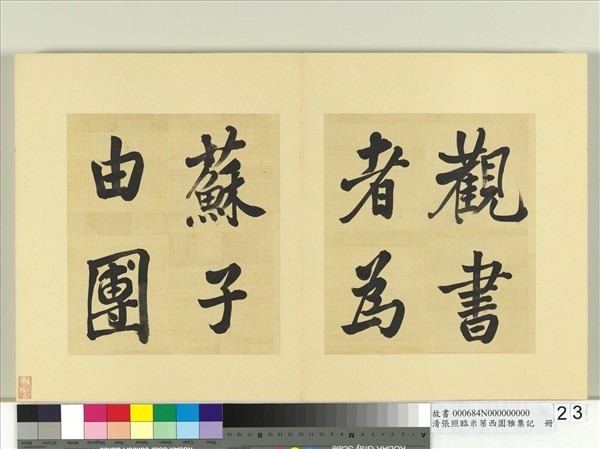 觀書
者為
蘇子
由團
故書 000684N000000000
清張照臨米芾西園雅集記 冊
23